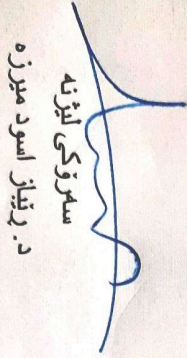 سەرۆکی لێژنە
د. ڕێباز اسود میرزە